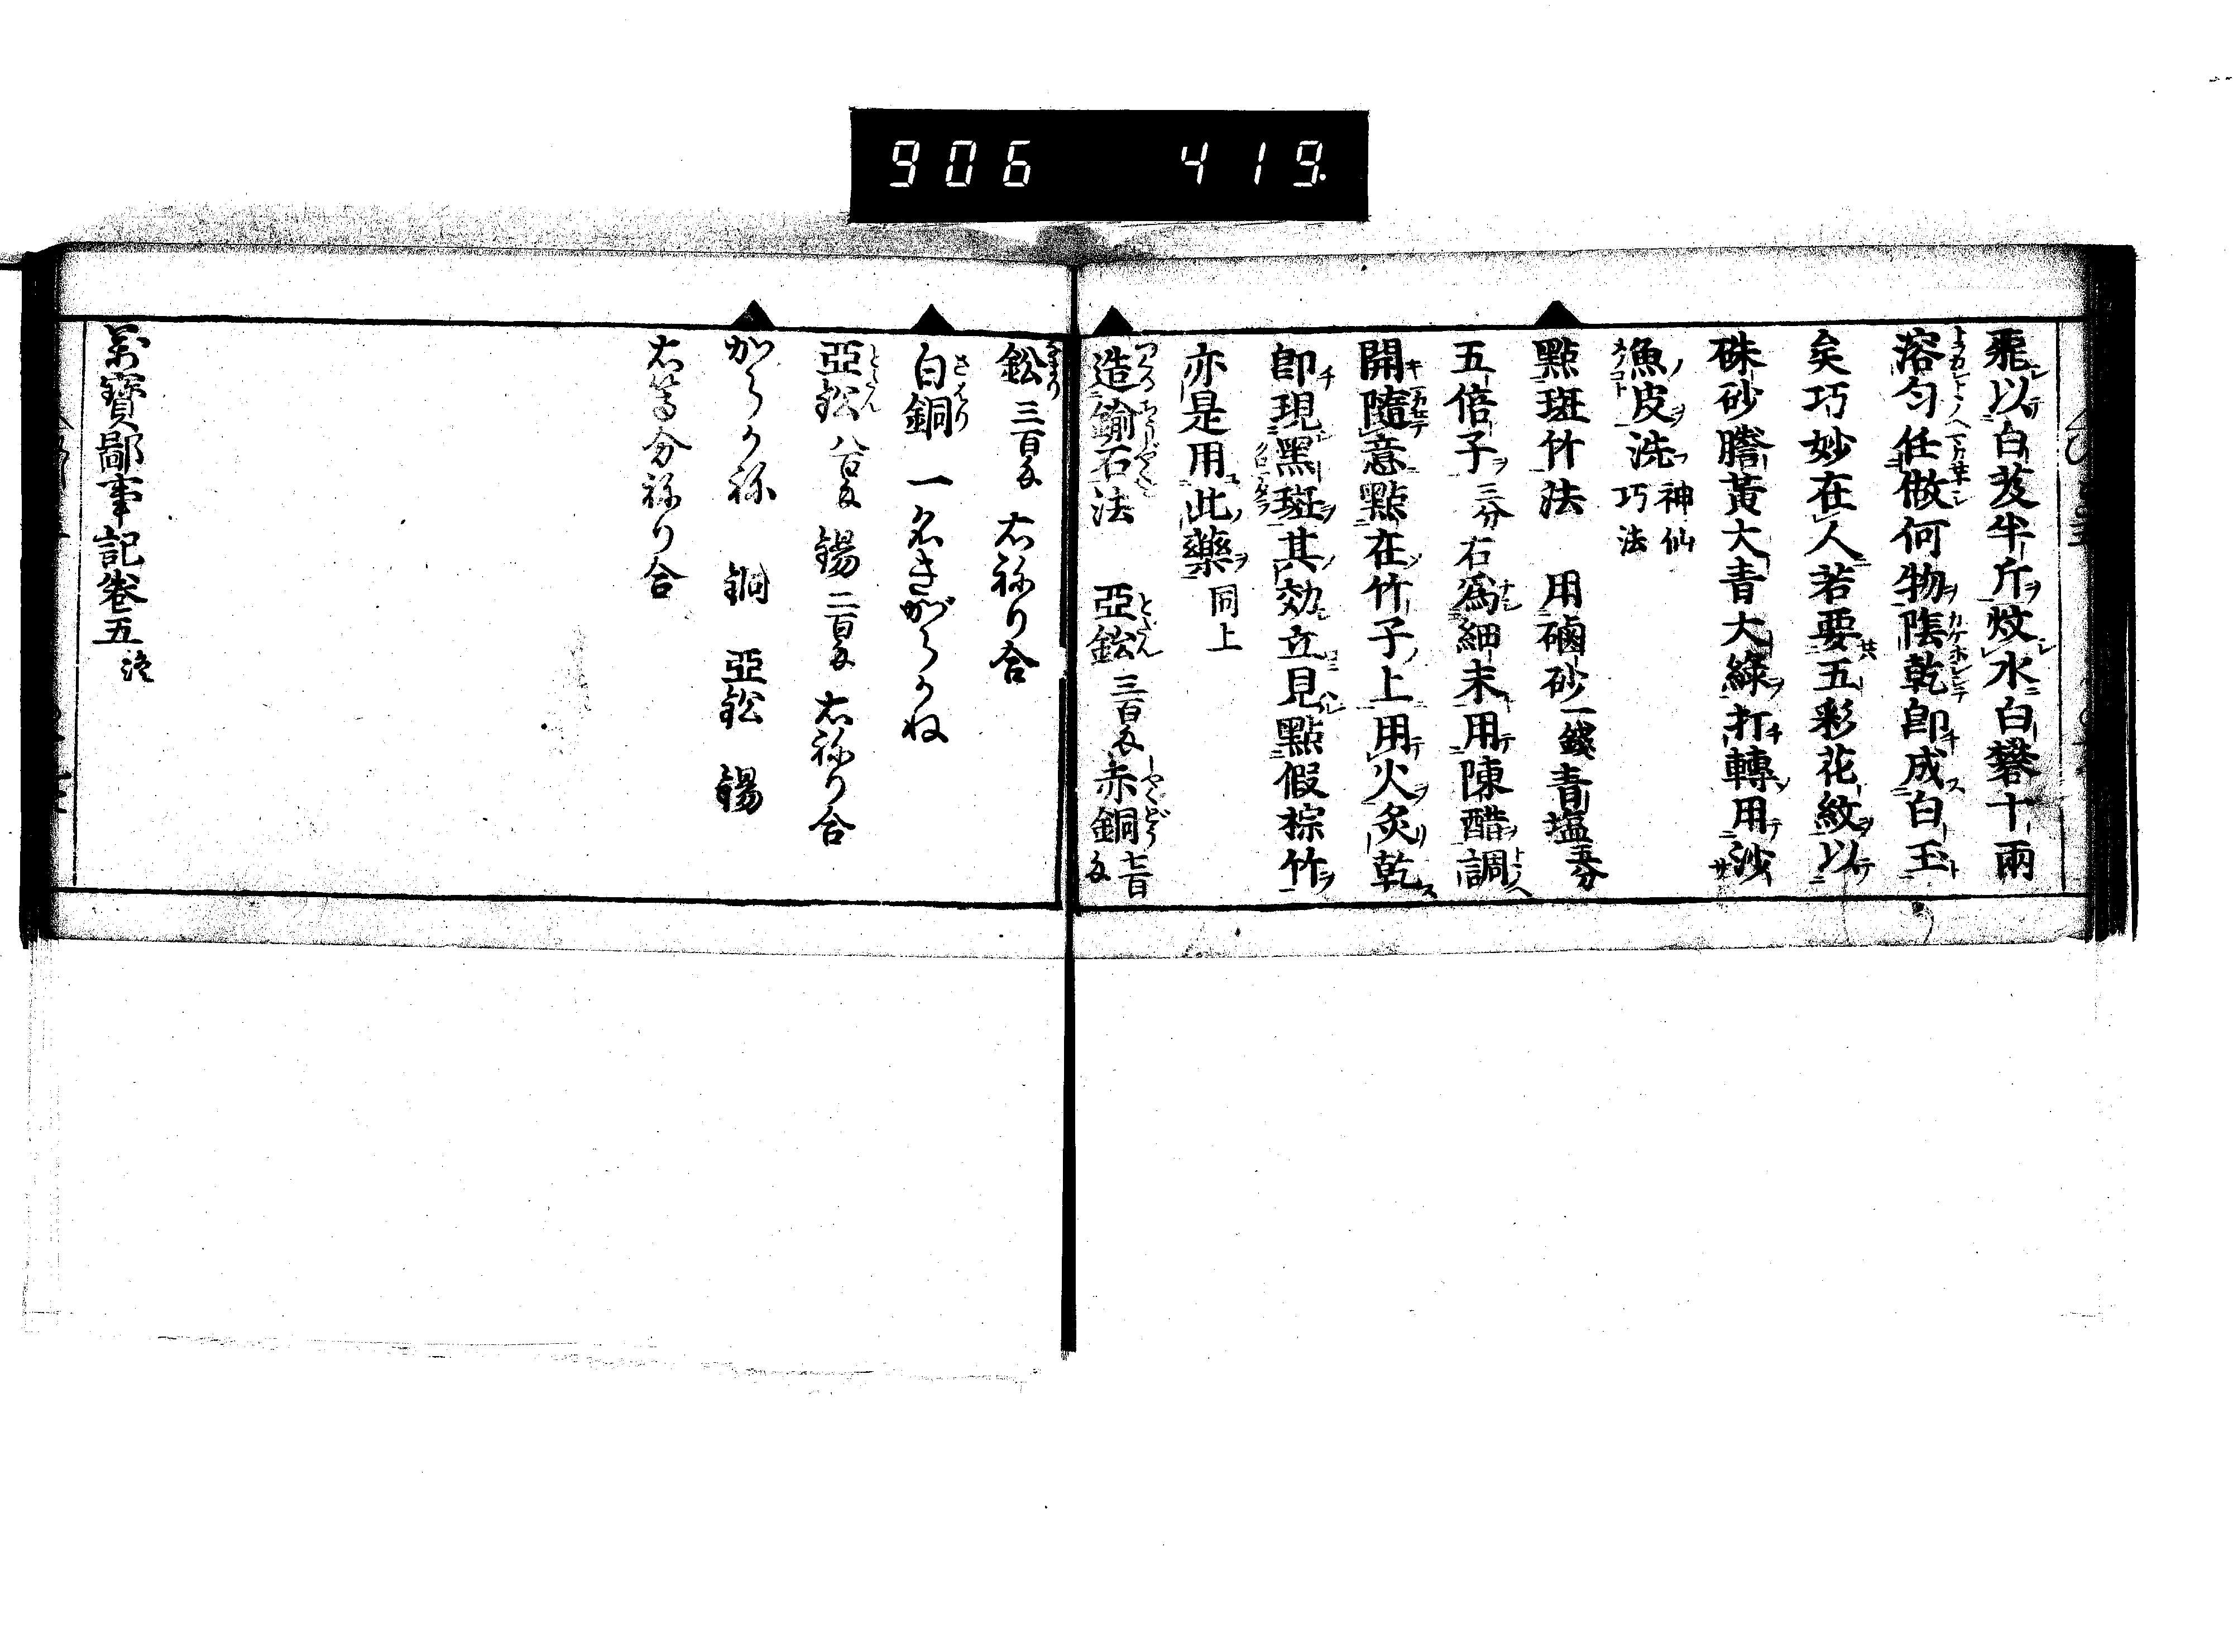 906 419
飛以白芨半斤炆水白礬十兩
溶匀任做何物陰乾即成白玉
矣巧妙在人若要五彩花紋以
硃砂謄黄大青大緑打轉用沙
魚皮洗 神仙巧法
點斑竹法 用磠砂一錢青塩五分
五倍子三分右爲細末用陳醋調
開隨意點在竹子上用火炙乾
即現黑斑其効立見點假棕竹
亦是用此藥 同上
造鍮石法 亞鈆三百目赤銅七百目
鈆三百目 右祢り合
白銅 一名きがらかね
亞鈆八百目 錫二百目 右祢り合
からかね 銅 亞鈆 錫
右等分祢り合
萬寳鄙事記卷五終